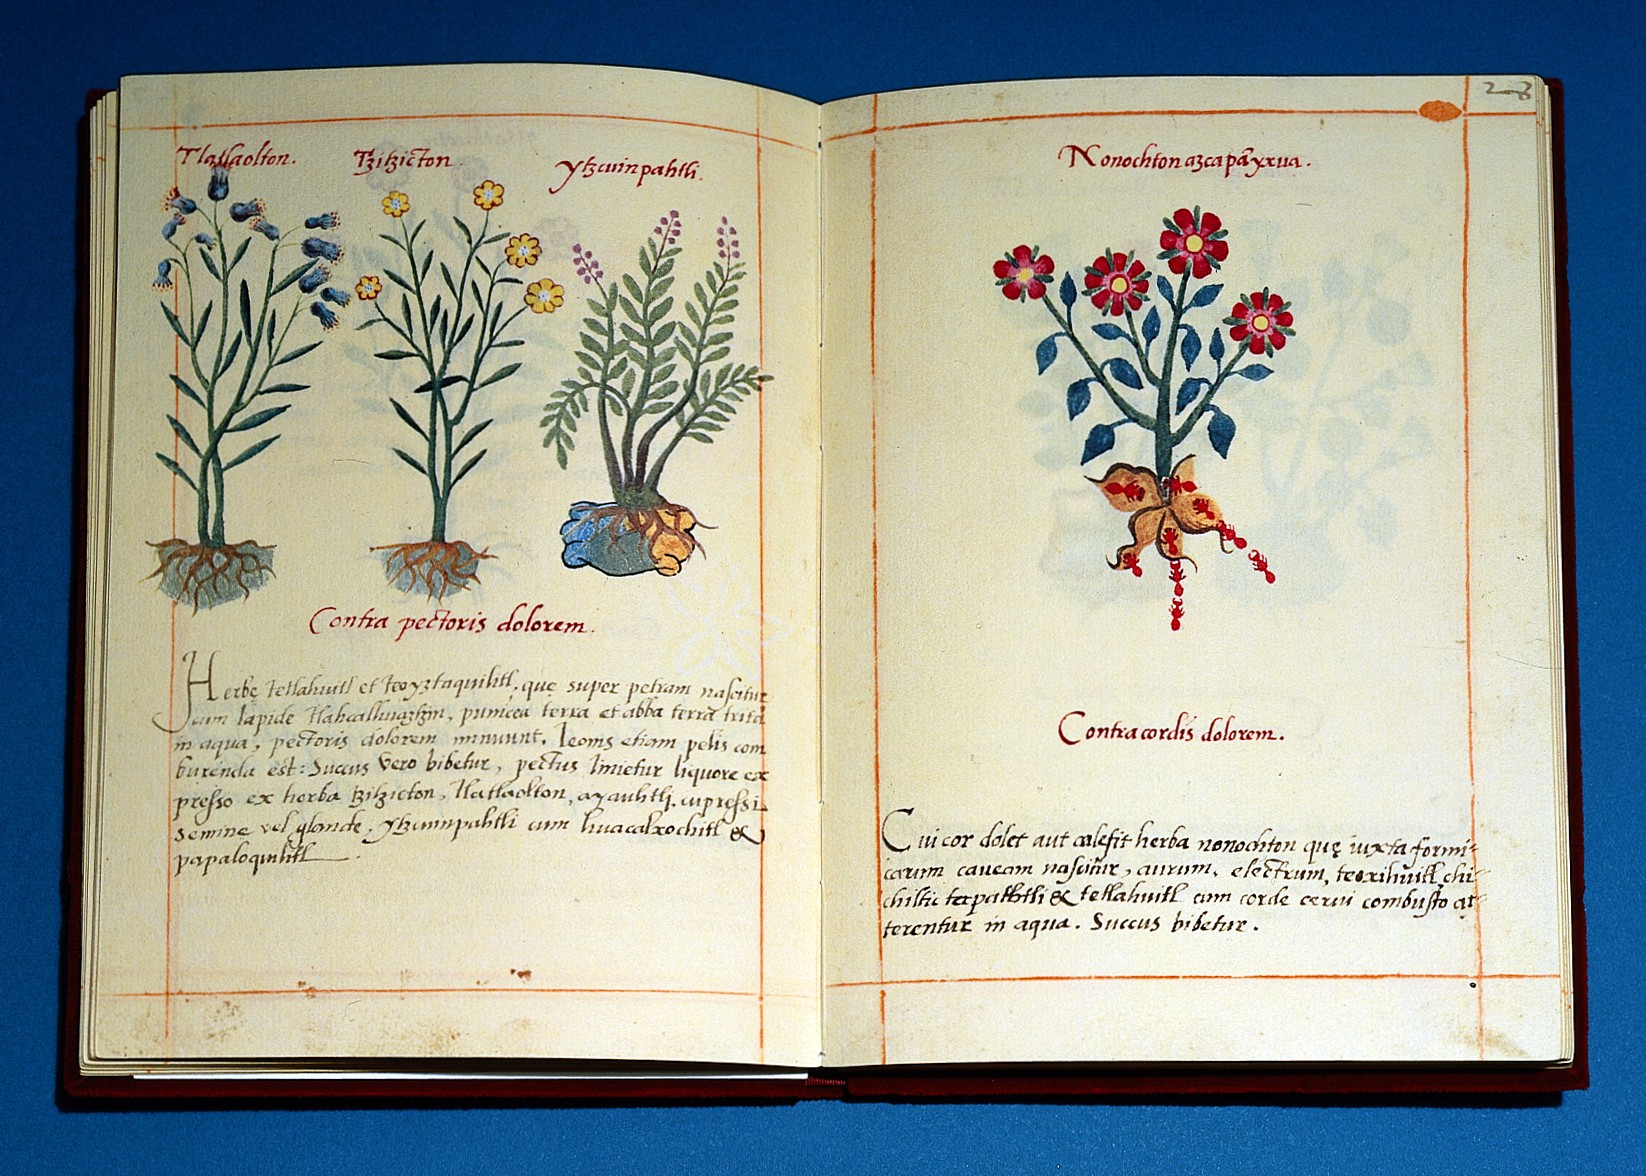 Tlatlaolton. Tzitzicton. Ytzcuinpahtli.
Contra pectoris dolorem.
Herbę tetlahuitl et teoyztaquilitl, quę super petram nascitur
cum lapide tlahcalhuatzin, punicea terra et abba terra trita
in aqua, pectoris dolorem minuunt. Leonis etiam pelis com
burenda est: Succus vero bibetur, pectus linietur liquore ex
presso ex herba tzitzicton, tlatlaolton, ayauhtli, cupressi
semine vel glande, ytzcuinpahtli cum huacalxochitl &
papaloquilitl.
23
Nonochton azcapāyxua.
Contra cordis dolorem.
Cui cor dolet aut calefit herba nonochton quę iuxta formi-
carum caveam nascitur, aurum, electrum, teoxihuitl, chi-
chiltic tecpatltli & tetlahuitl cum corde cervi combusto at-
terentur in aqua. Succus bibetur.